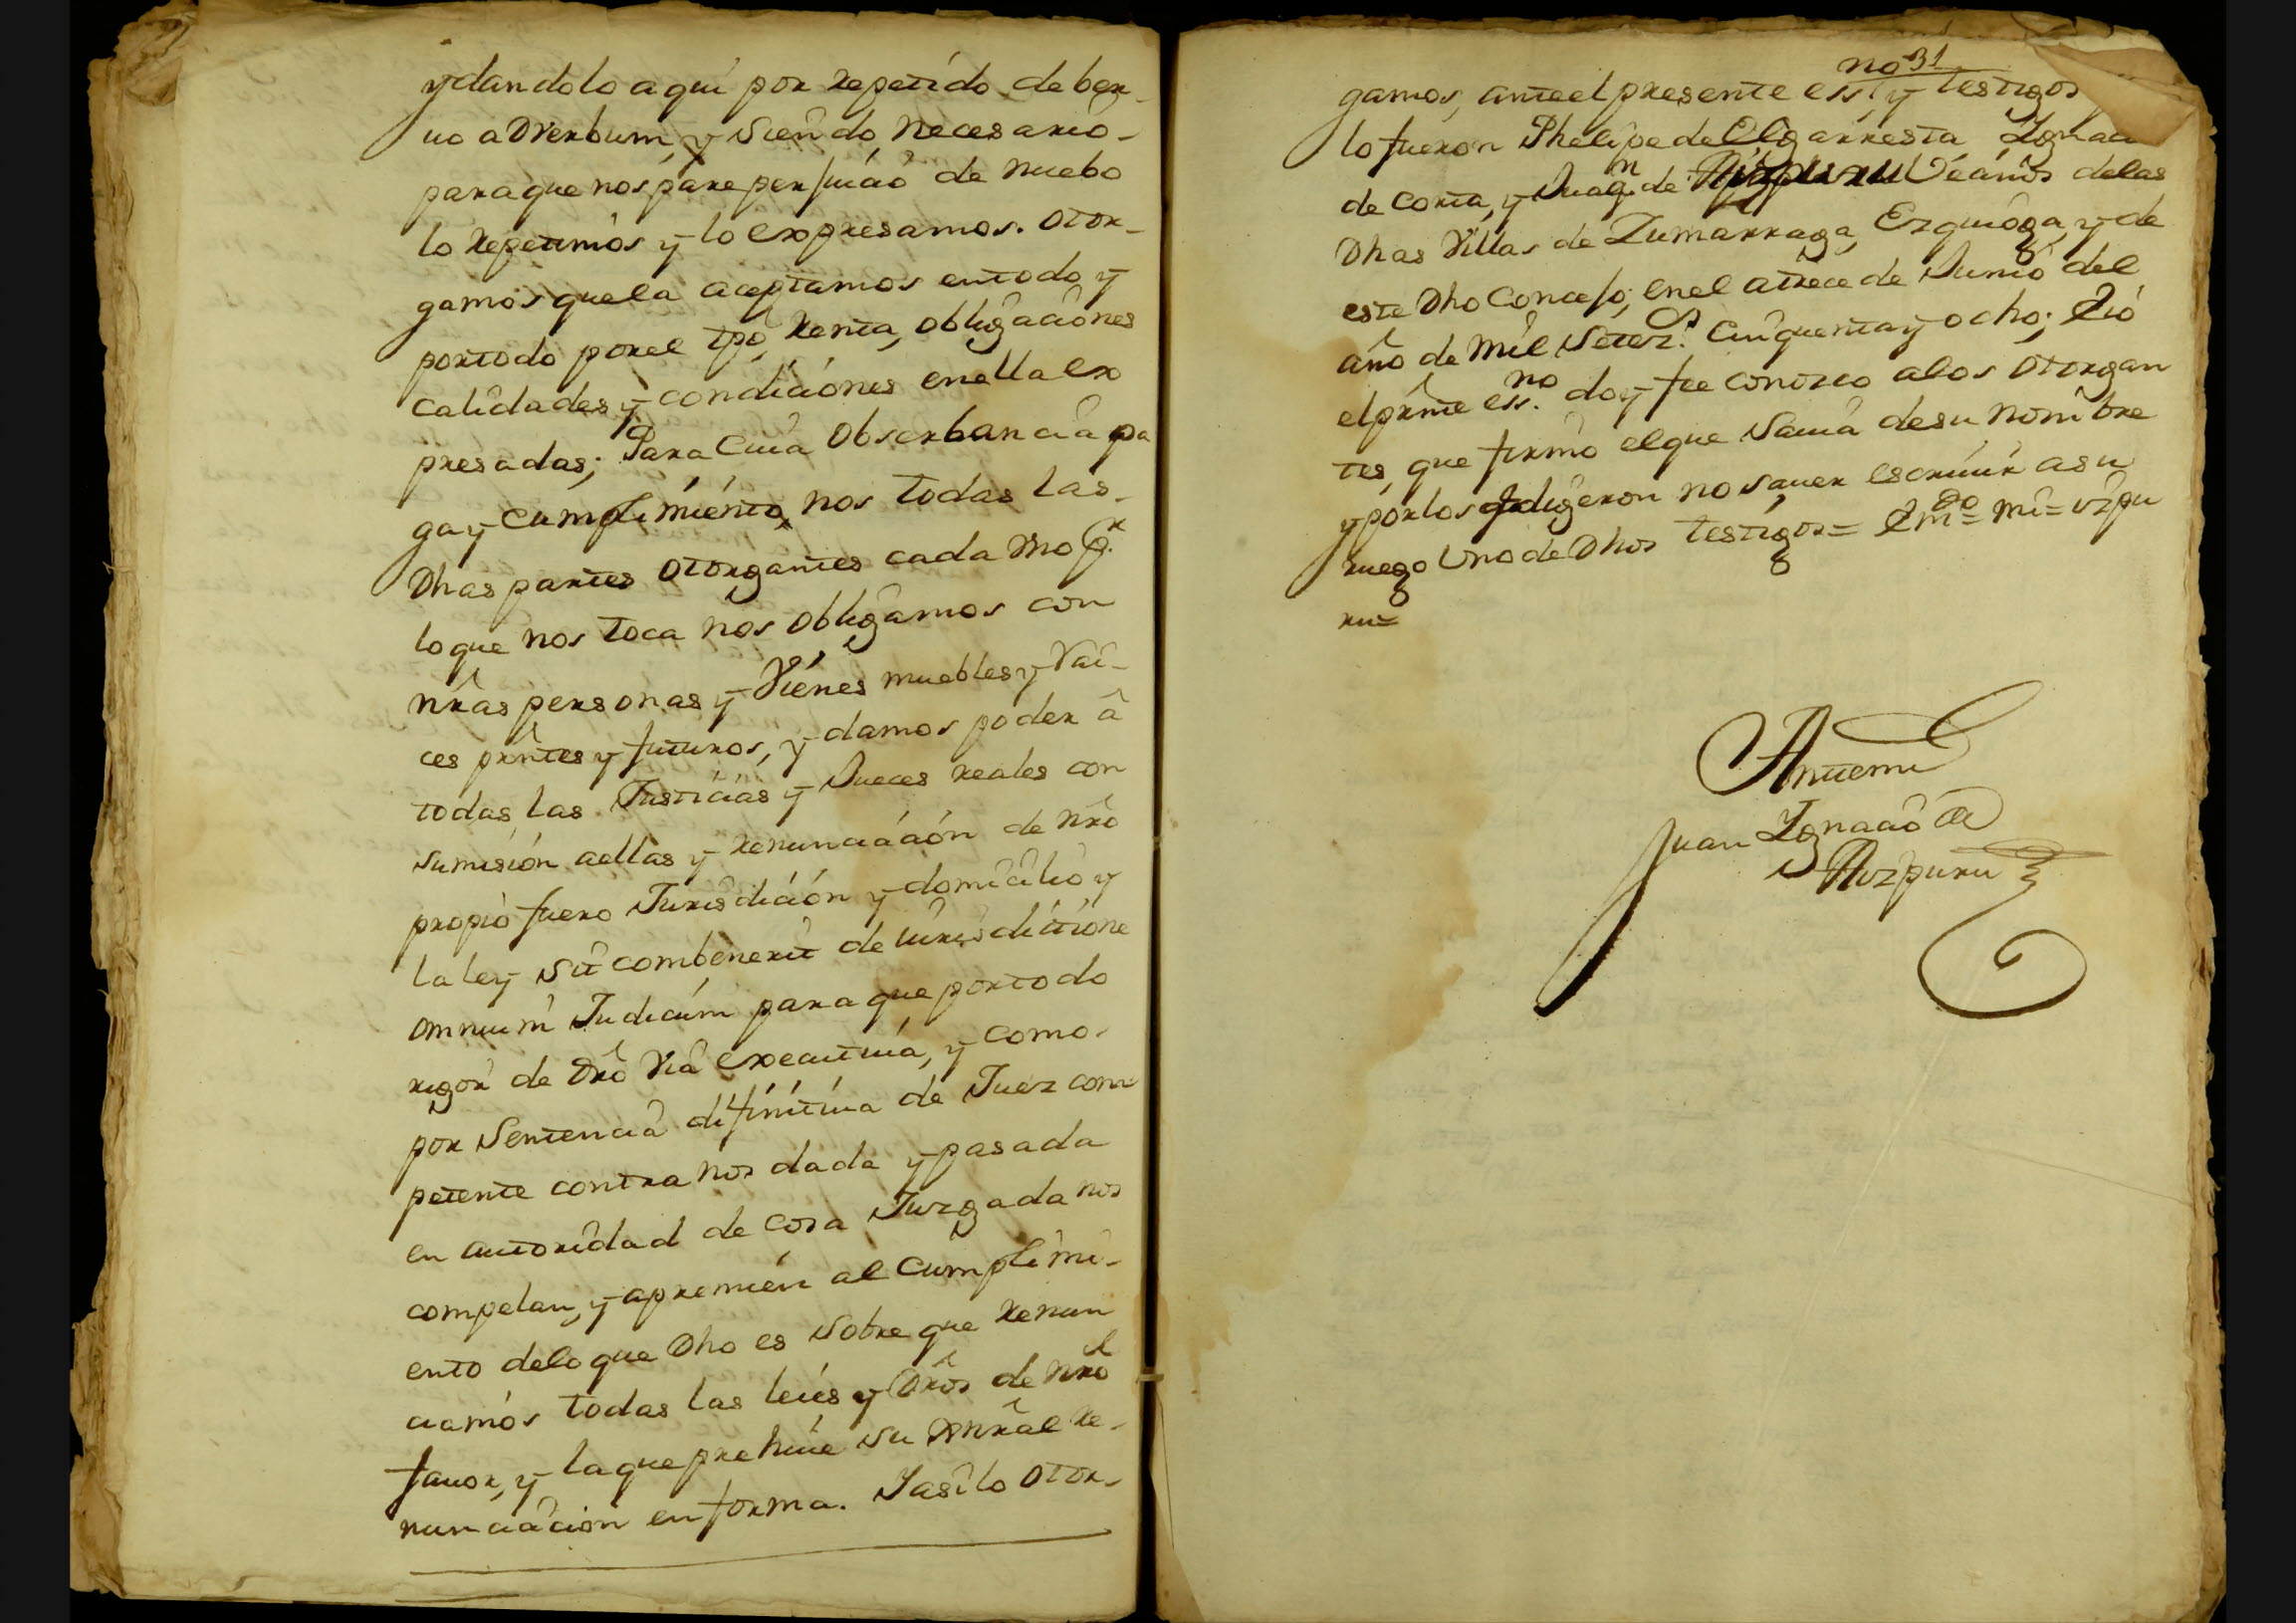 y dandolo aqui por repetido de ber-
uo aDverbum, y siendo necesario-
para que nos pare perjuicio de nuebo
lo repetimos y lo expresamos. otor-
gamos que la aceptamos en todo y
por todo por el tpo, Renta, obligaciones
calidades y condiciones en ella ex
presadas; Para cuia obserbancia pa
ga y cumplimiento nos todas las-
Dhas partes otorgantes cada vno pr.
lo que nos toca nos obligamos con
nrãs personas y Vienes muebles y Rai-
ces prntes y futuros, y damos poder â
todas las Justicias y Jueces reales con
sumision aellas y renunciacion de nrõ
propio fuero Jurisdicion y domicilio y
la ley sit combenerit de iurisditione
omnium Judicum para que por todo
rigor de Drõ via executiua, y como-
por Sentencia difinitiua de Juez com
petente contra nos dada y pasada
en autoridad de cosa Juzgada nos
compelan, y apremien al cumplimi-
ento delo que Dho es sobre que renun
ciamos todas las leies y Drõs de nrõ
fauor, y la que prehiue su Genral re-
nunciacion en forma. Y asi lo otor-
31
gamos, ante el presente essno y testigos
lo fueron Phelipe de Elgarresta Ignaci
de Corta, y Juaqn. de Aizpuru Vecinos delas
Dhas Villas de Zumarraga, Ezquioga, y de
este Dho Concejo, en el a trece de Junio del
año de mil Setezs. cinquenta y ocho; E io
el prnte essno. doy fee conozco alos otorgan
tes, que firmo el que sauia de su nombre
y por los q digeron no sauer escriuir a su
ruego Uno de Dhos testigos= Emdo= mi= izpu
ru=
Antemi
Juan Ignacio de
Aizpuru